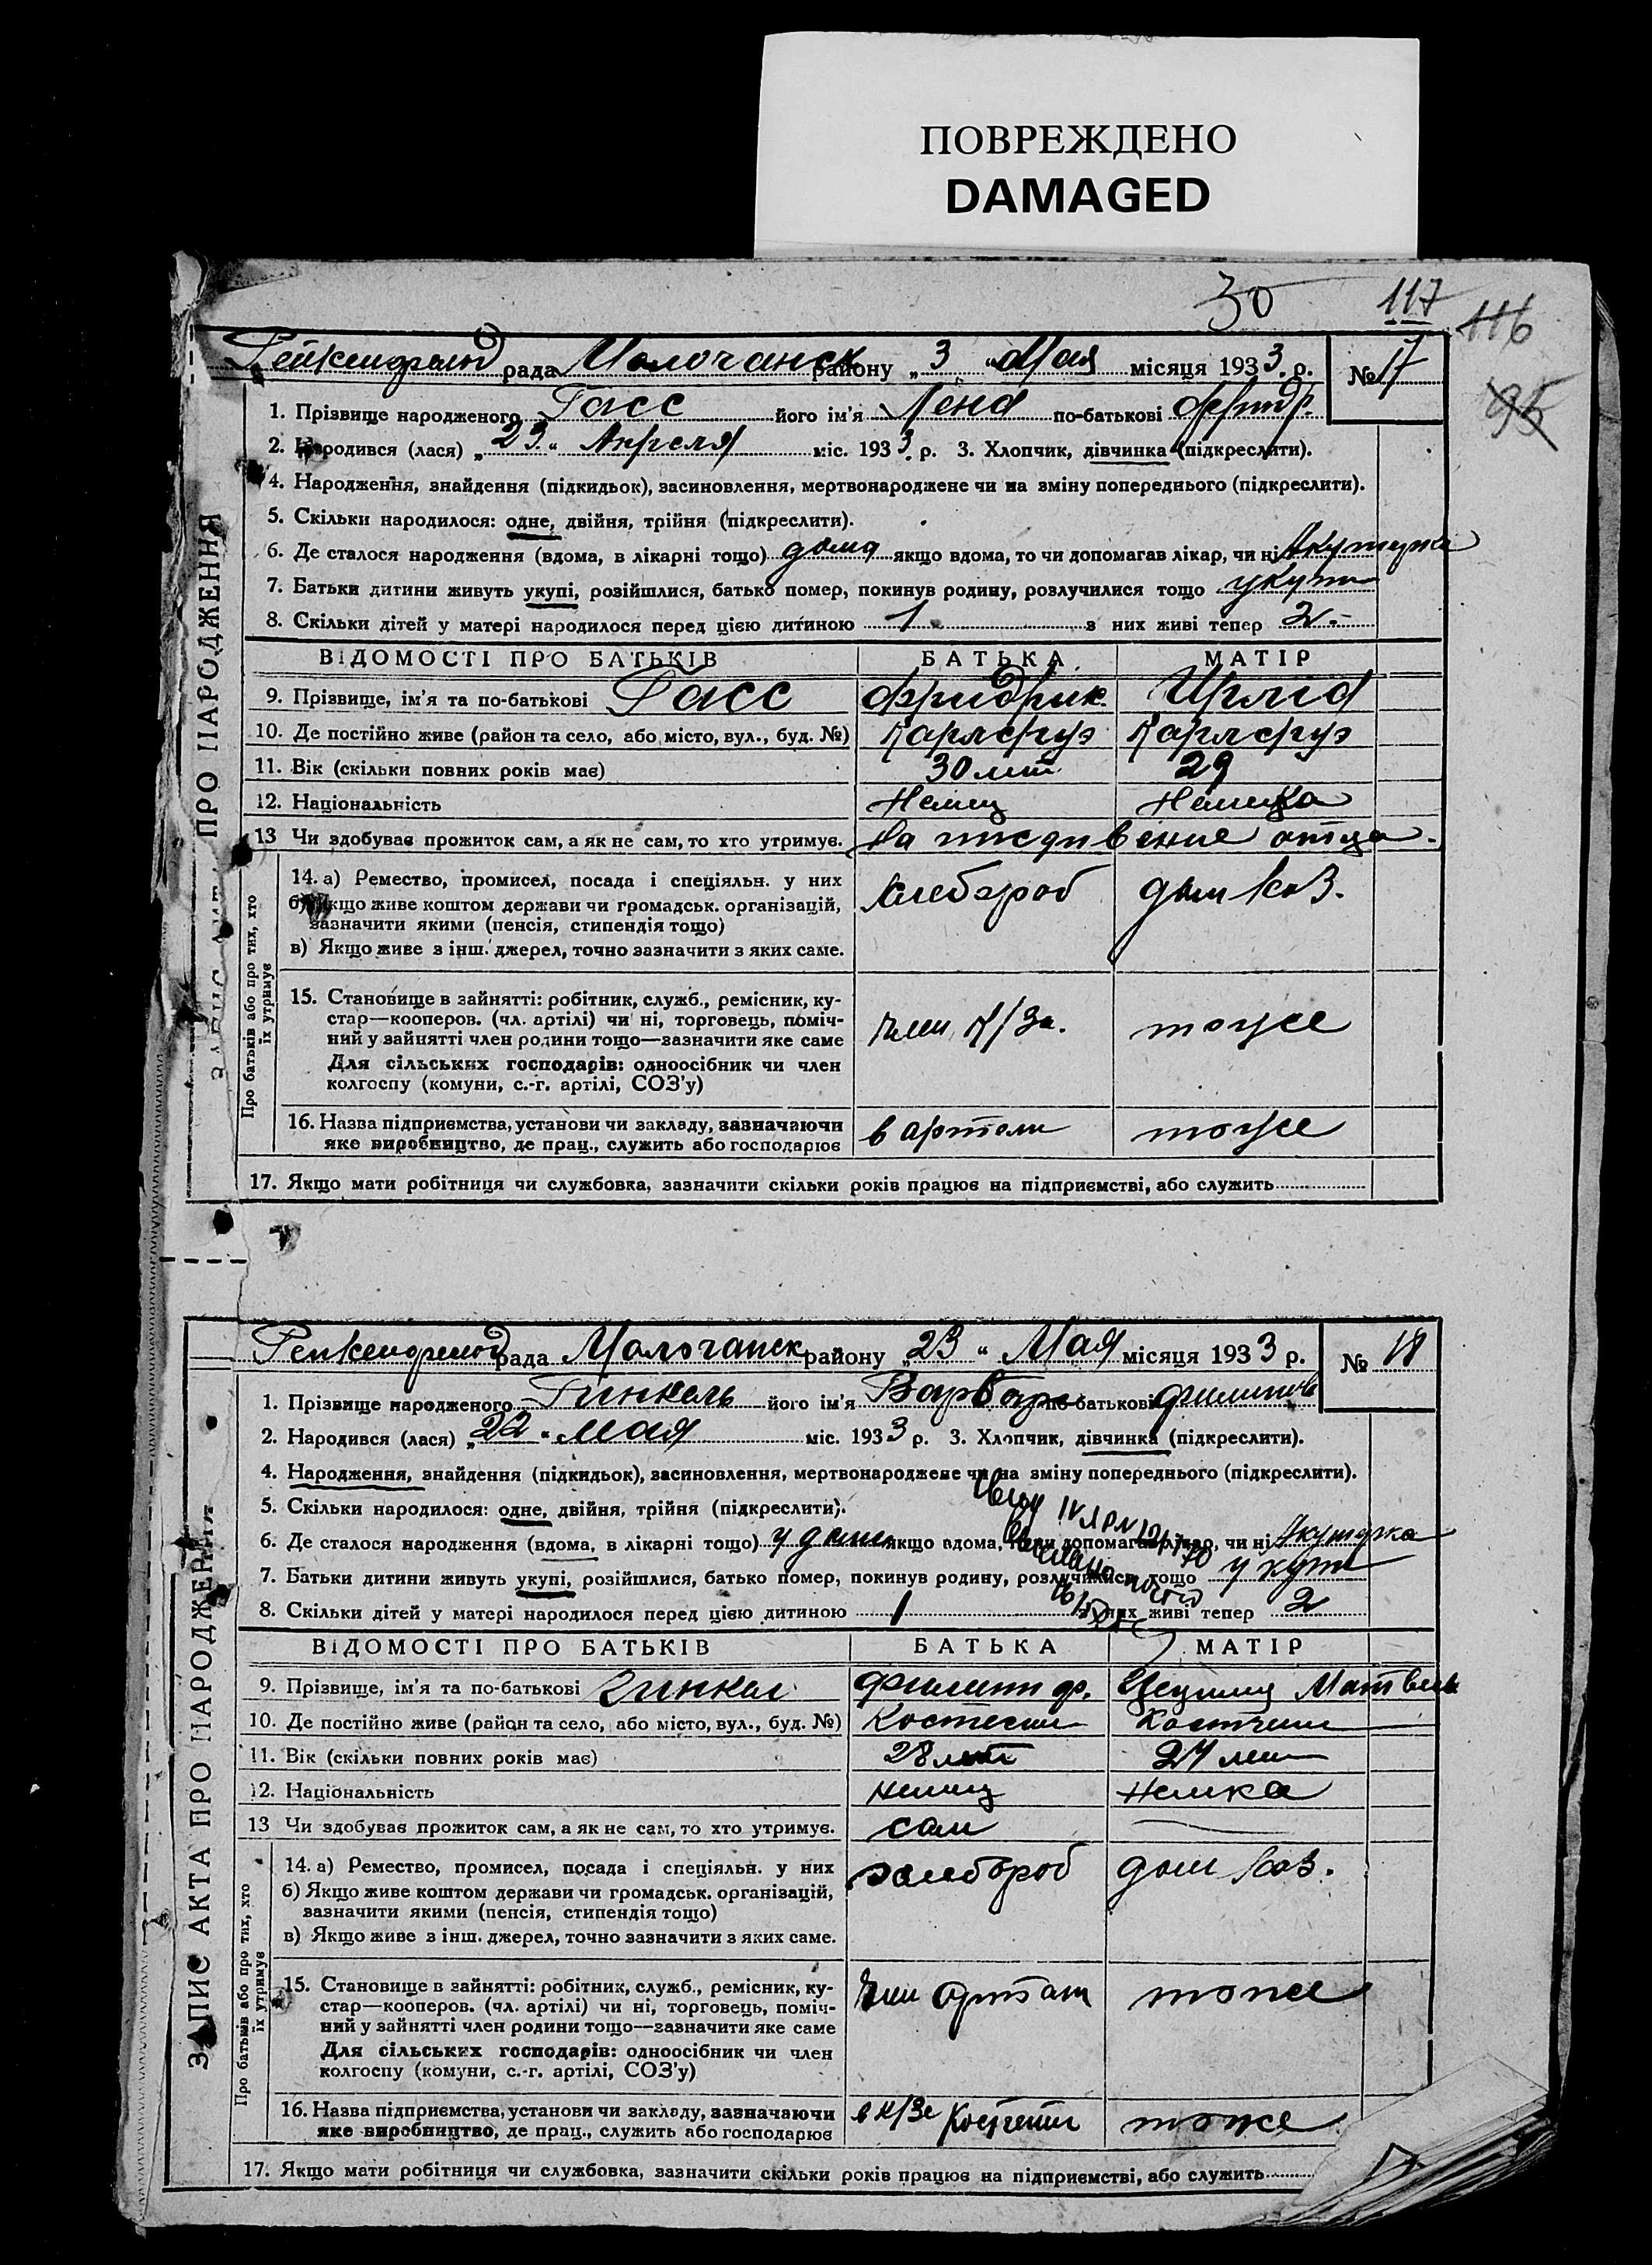 ПОВРЕЖДЕНО
DAMAGED
30 117
116
95
Рейкенфельд рада Молочанск району „3“ Мая місяця 1933 р. № 17
1. Прізвище народженого Гасс його ім'я Лена по-батькові Фридр.
2. Народився (лася) „23“ Апреля міс. 1933 р. 3. Хлопчик, дівчинка (підкреслити).
4. Народження, знайдення (підкидьок), засиновлення, мертвонароджене чи на зміну попереднього (підкреслити).
5. Скільки народилося: одне, двійня, трійня (підкреслити).
6. Де сталося народження (вдома, в лікарні тощо) дома якщо вдома, то чи допомагав лікар, чи ні Акушерка
7. Батьки дитини живуть укупі, розійшлися, батько помер, покинув родину, розлучилися тощо укупи
8. Скільки дітей у матері народилося перед цією дитиною 1 з них живі тепер 2-
ЗАПИС АКТА ПРО НАРОДЖЕННЯ
ВІДОМОСТІ ПРО БАТЬКІВ БАТЬКА МАТІР
9. Прізвище, ім'я та по-батькові Гасс Фридрих
10. Де постійно живе (район та село, або місто, вул., буд. №) Карлсруэ Карлсруэ
11. Вік (скільки повних років має) 30 лет 29
12. Національність Немец Немецка
13 Чи здобуває прожиток сам, а як не сам, то хто утримує. На иждивение отца.
Про батьків або про тих, хто їх утримує
14. а) Ремество, промисел, посада і спеціяльн. у них хлебороб дом хоз.
б) Якщо живе коштом держави чи громадськ. організацій,
зазначити якими (пенсія, стипендія тощо)
в) Якщо живе з інш. джерел, точно зазначити з яких саме.
15. Становище в зайнятті: робітник, служб., ремісник, ку-
стар—кооперов. (чл. артілі) чи ні, торговець, поміч-
ний у зайнятті член родини тощо—зазначити яке саме член к/за. тоже
Для сільських господарів: одноосібник чи член
колгоспу (комуни, с.-г. артілі, СОЗ'у)
16. Назва підприємства, установи чи закладу, зазначаючи в артели тоже
яке виробництво, де прац., служить або господарює
17. Якщо мати робітниця чи службовка, зазначити скільки років працює на підприємстві, або служить
Рейкенфельд рада Молочанск району „23“ Мая місяця 1933 р. № 18
1. Прізвище народженого Гинкель його ім'я Варвара по-батькові Филипов
2. Народився (лася) „22“ мая міс. 1933 р. 3. Хлопчик, дівчинка (підкреслити).
4. Народження, знайдення (підкидьок), засиновлення, мертвонароджене чи на зміну попереднього (підкреслити).
5. Скільки народилося: одне, двійня, трійня (підкреслити).
6. Де сталося народження (вдома, в лікарні тощо) у дома якщо вдома, то чи допомагав лікар, чи ні Акушерка
7. Батьки дитини живуть укупі, розійшлися, батько помер, покинув родину, розлучилися тощо укупи
8. Скільки дітей у матері народилося перед цією дитиною 1 з них живі тепер 2
ЗАПИС АКТА ПРО НАРОДЖЕННЯ
ВІДОМОСТІ ПРО БАТЬКІВ БАТЬКА МАТІР
9. Прізвище, ім'я та по-батькові Гинкель Филипп Ф.
10. Де постійно живе (район та село, або місто, вул., буд. №) Костгейм Костгейм
11. Вік (скільки повних років має) 28 лет 27 лет
12. Національність немец Немка
13 Чи здобуває прожиток сам, а як не сам, то хто утримує. сам
Про батьків або про тих, хто їх утримує
14. а) Ремество, промисел, посада і спеціяльн. у них хлебороб дом хоз.
б) Якщо живе коштом держави чи громадськ. організацій,
зазначити якими (пенсія, стипендія тощо)
в) Якщо живе з інш. джерел, точно зазначити з яких саме.
15. Становище в зайнятті: робітник, служб., ремісник, ку-
стар—кооперов. (чл. артілі) чи ні, торговець, поміч- член артели тоже
ний у зайнятті член родини тощо—зазначити яке саме
Для сільських господарів: одноосібник чи член
колгоспу (комуни, с.-г. артілі, СОЗ'у)
16. Назва підприємства, установи чи закладу, зазначаючи в к/зе Костгейм тоже
яке виробництво, де прац., служить або господарює
17. Якщо мати робітниця чи службовка, зазначити скільки років працює на підприємстві, або служить